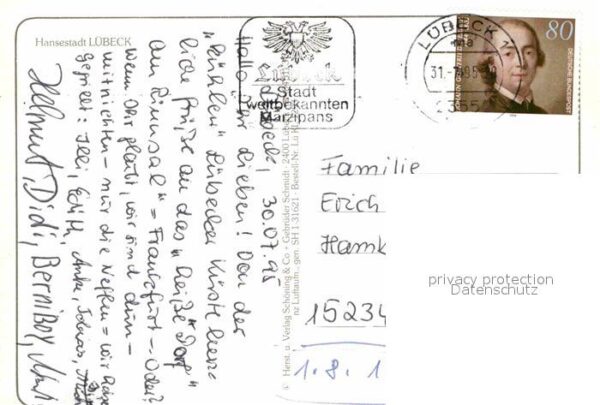 Hansestadt LÜBECK
Lübeck, 30.07.95
Hallo Ihr Lieben! Von der
"kühlen" Lübecker Küste liebe
Grüße an das "heiße Dorf"
am Rinnsal = Frankfurt-Oder!
Wenn Ihr glaubt, wir sind dun-
mitnichten - nur die Neffen = wir
Gegrüßt: Illi, Edith, Anke, Tobias,
Helmut, Didi, BerniBoy,
© Herst. u. Verlag Schöning & Co + Gebrüder Schmidt · 2400 Lüb
Luftaufn., gen. SH 1-31621 · Bestell-Nr. Lü
Lübeck
Stadt
weltbekannten
Marzipans
LÜBECK
31.-7.95
2355
80
DEUTSCHE BUNDESPOST
Familie
Erich
Hamk
15234
1.8.1
privacy protection
Datenschutz